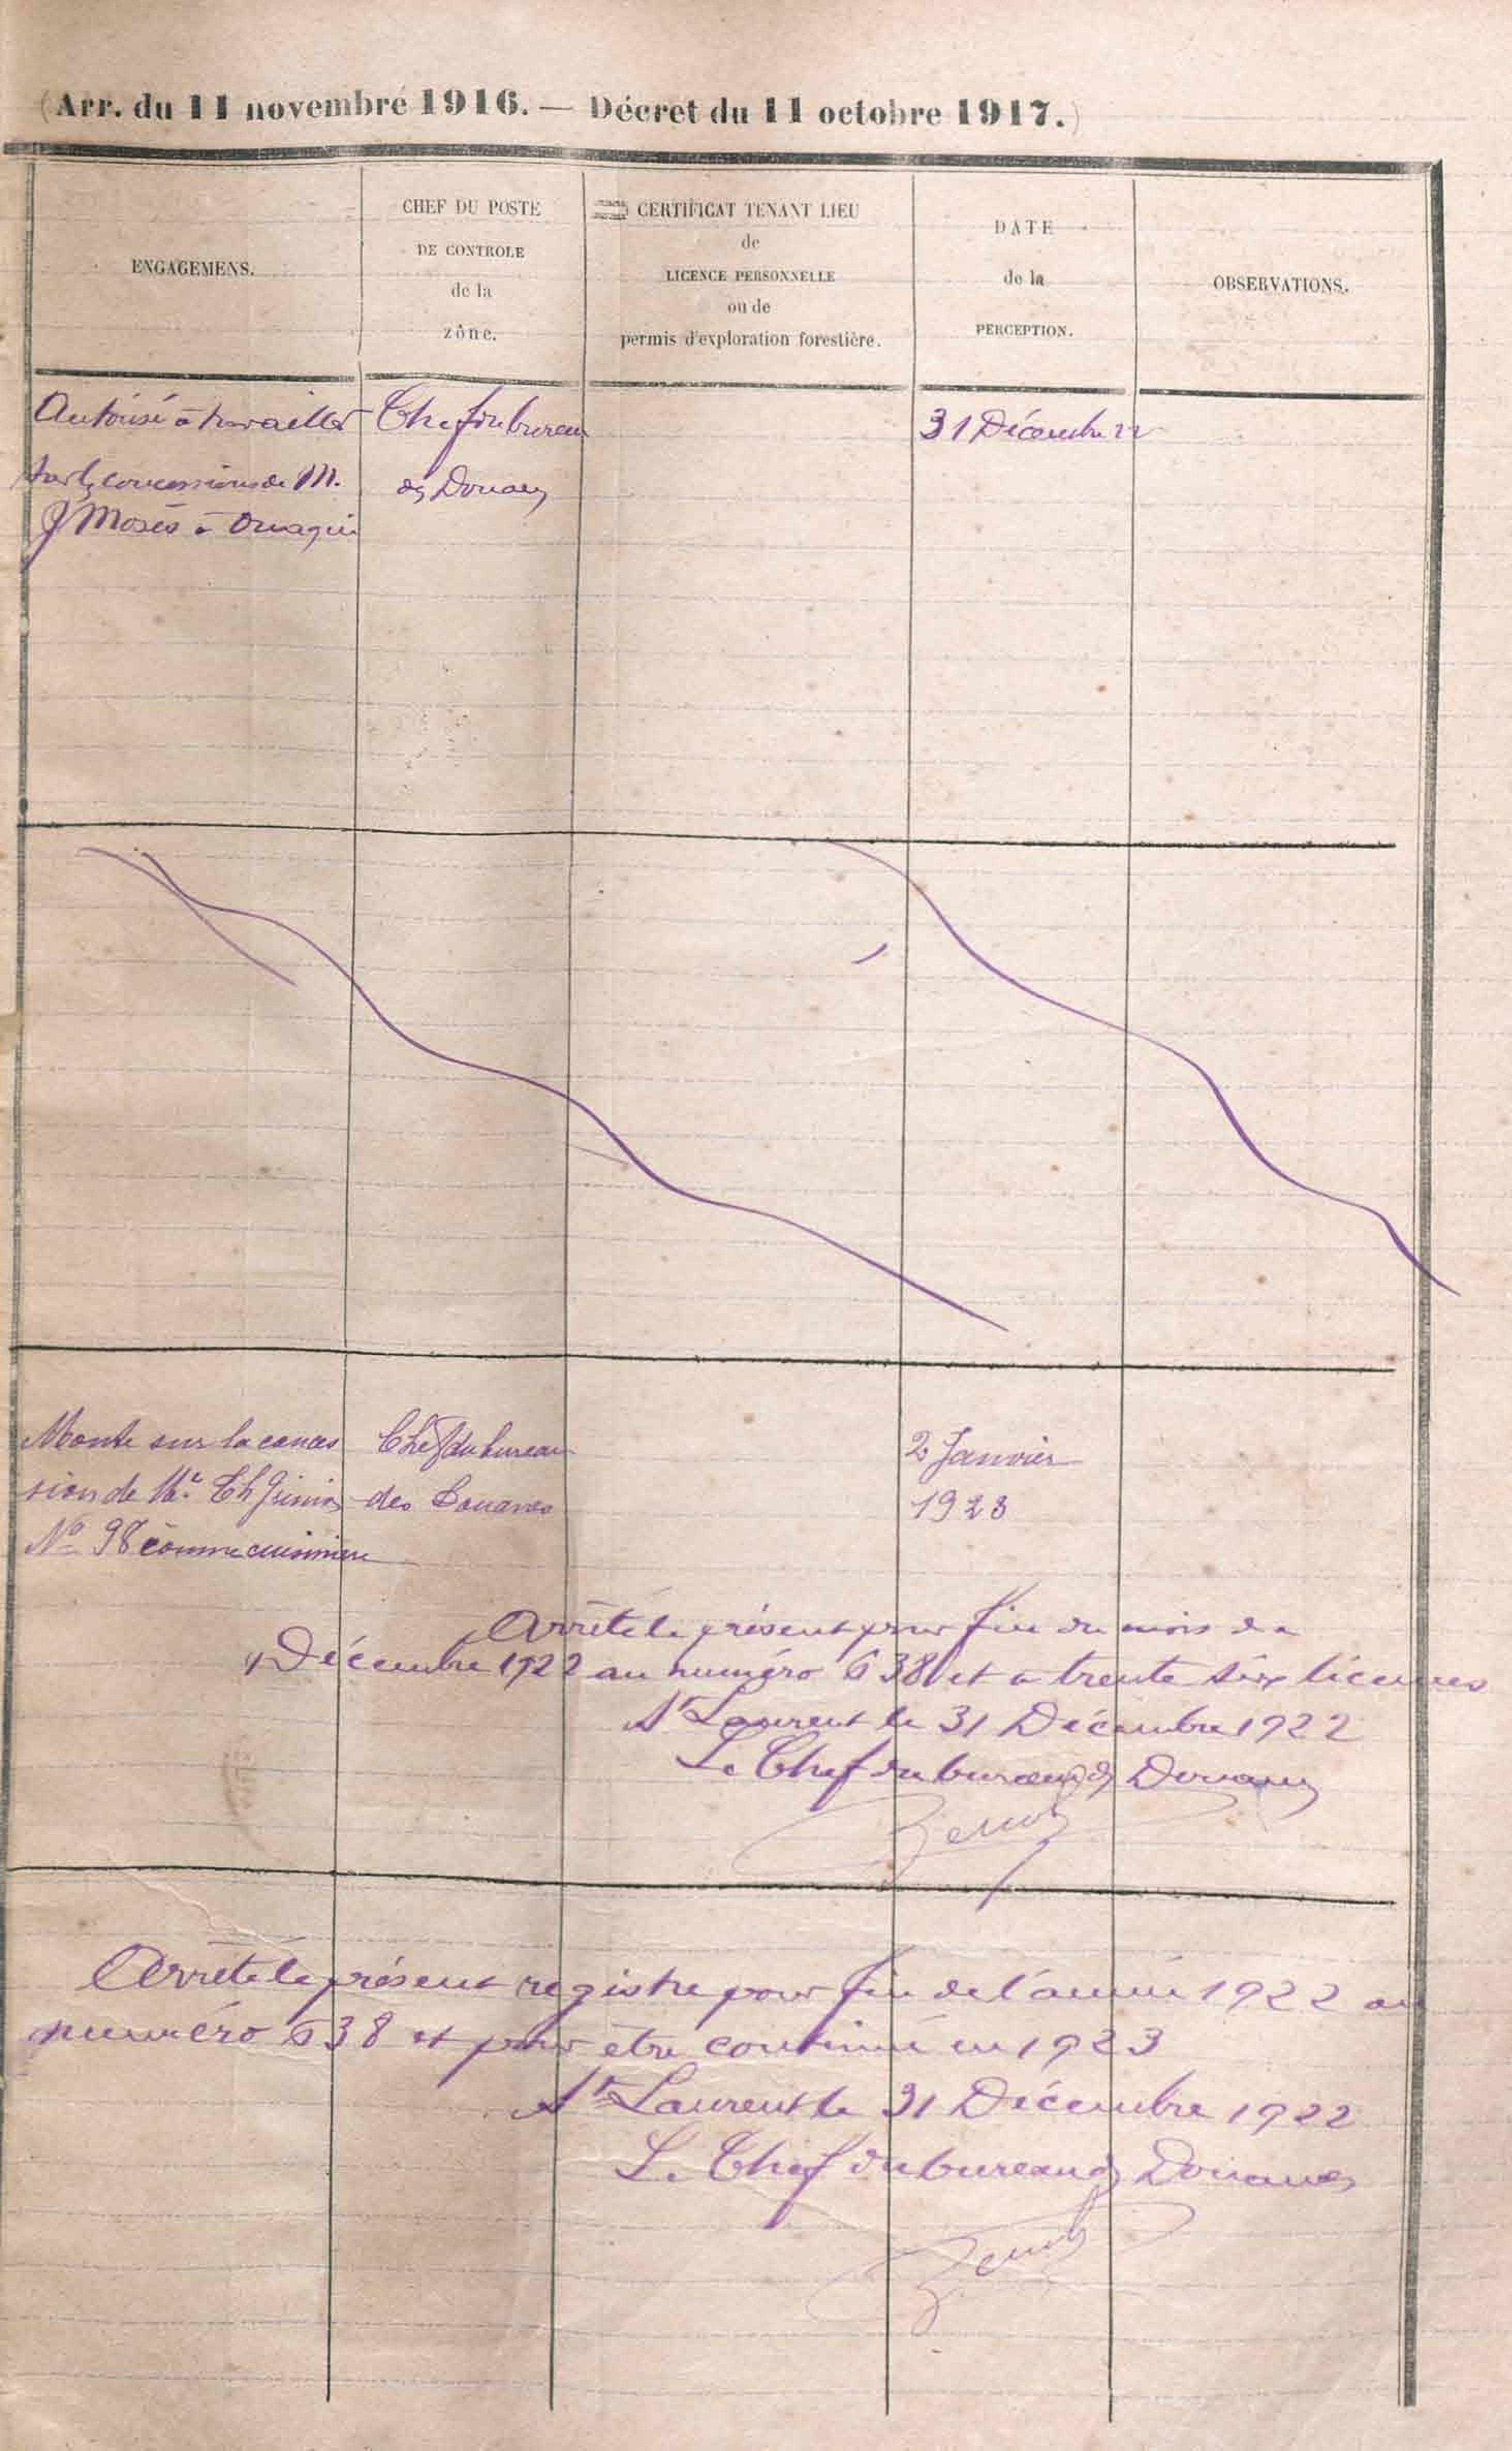 (Arr. du 11 novembre 1916. — Décret du 11 octobre 1917.)
ENGAGEMENS.
CHEF DU POSTE
DE CONTROLE
de la
zône.
CERTIFICAT TENANT LIEU
de
LICENCE PERSONNELLE
ou de
permis d'exploration forestière.
DATE
de la
PERCEPTION.
OBSERVATIONS.
Autorisé à travailler
sur les concessions de M.
J Mosès à
Chef du bureau
des Douanes
31 Décembre 22
Monte sur la conces
sion de Mr.
No 98 comme cuisinière
Chef du bureau
des Douanes
2 Janvier
1923
Arrêté le présent pour fin du mois de
Décembre 1922 au numéro 638 et a trente six licences
St Laurent le 31 Décembre 1922
Le Chef du bureau des Douanes
Arrêté le présent registre pour fin de l'année 1922 au
numéro 638 et pour être continué en 1923
St Laurent le 31 Décembre 1922
Le Chef du bureau des Douanes